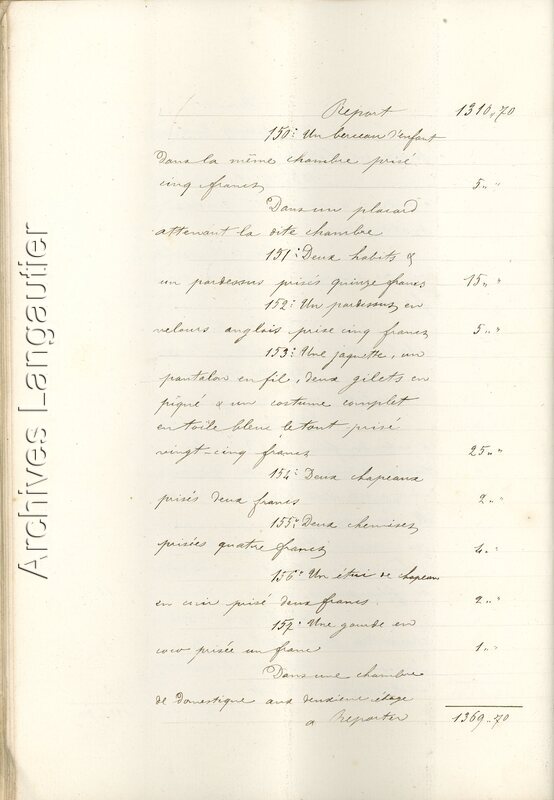 Report 1310,70
150° Un berceau d'enfant
Dans la même chambre prisé
cinq francs 5 " "
Dans un placard
attenant la dite chambre
151° Deux habits &
un pardessus prisés quinze francs 15 " "
152° Un pardessus en
velours anglais prisé cinq francs 5 " "
153° Une jaquette, un
pantalon en fil, deux gilets en
piqué & un costume complet
en toile bleue le tout prisé
vingt-cinq francs 25 " "
154° Deux chapeaux
prisés deux francs 2 " "
155° Deux chemises
prisées quatre francs 4 " "
156° Un étui de chapeau
en cuir prisé deux francs 2 " "
157° Une gourde en
coco prisée un franc 1 " "
Dans une chambre
de domestique au deuxième étage
a Reporter 1369,70
Archives Langautier